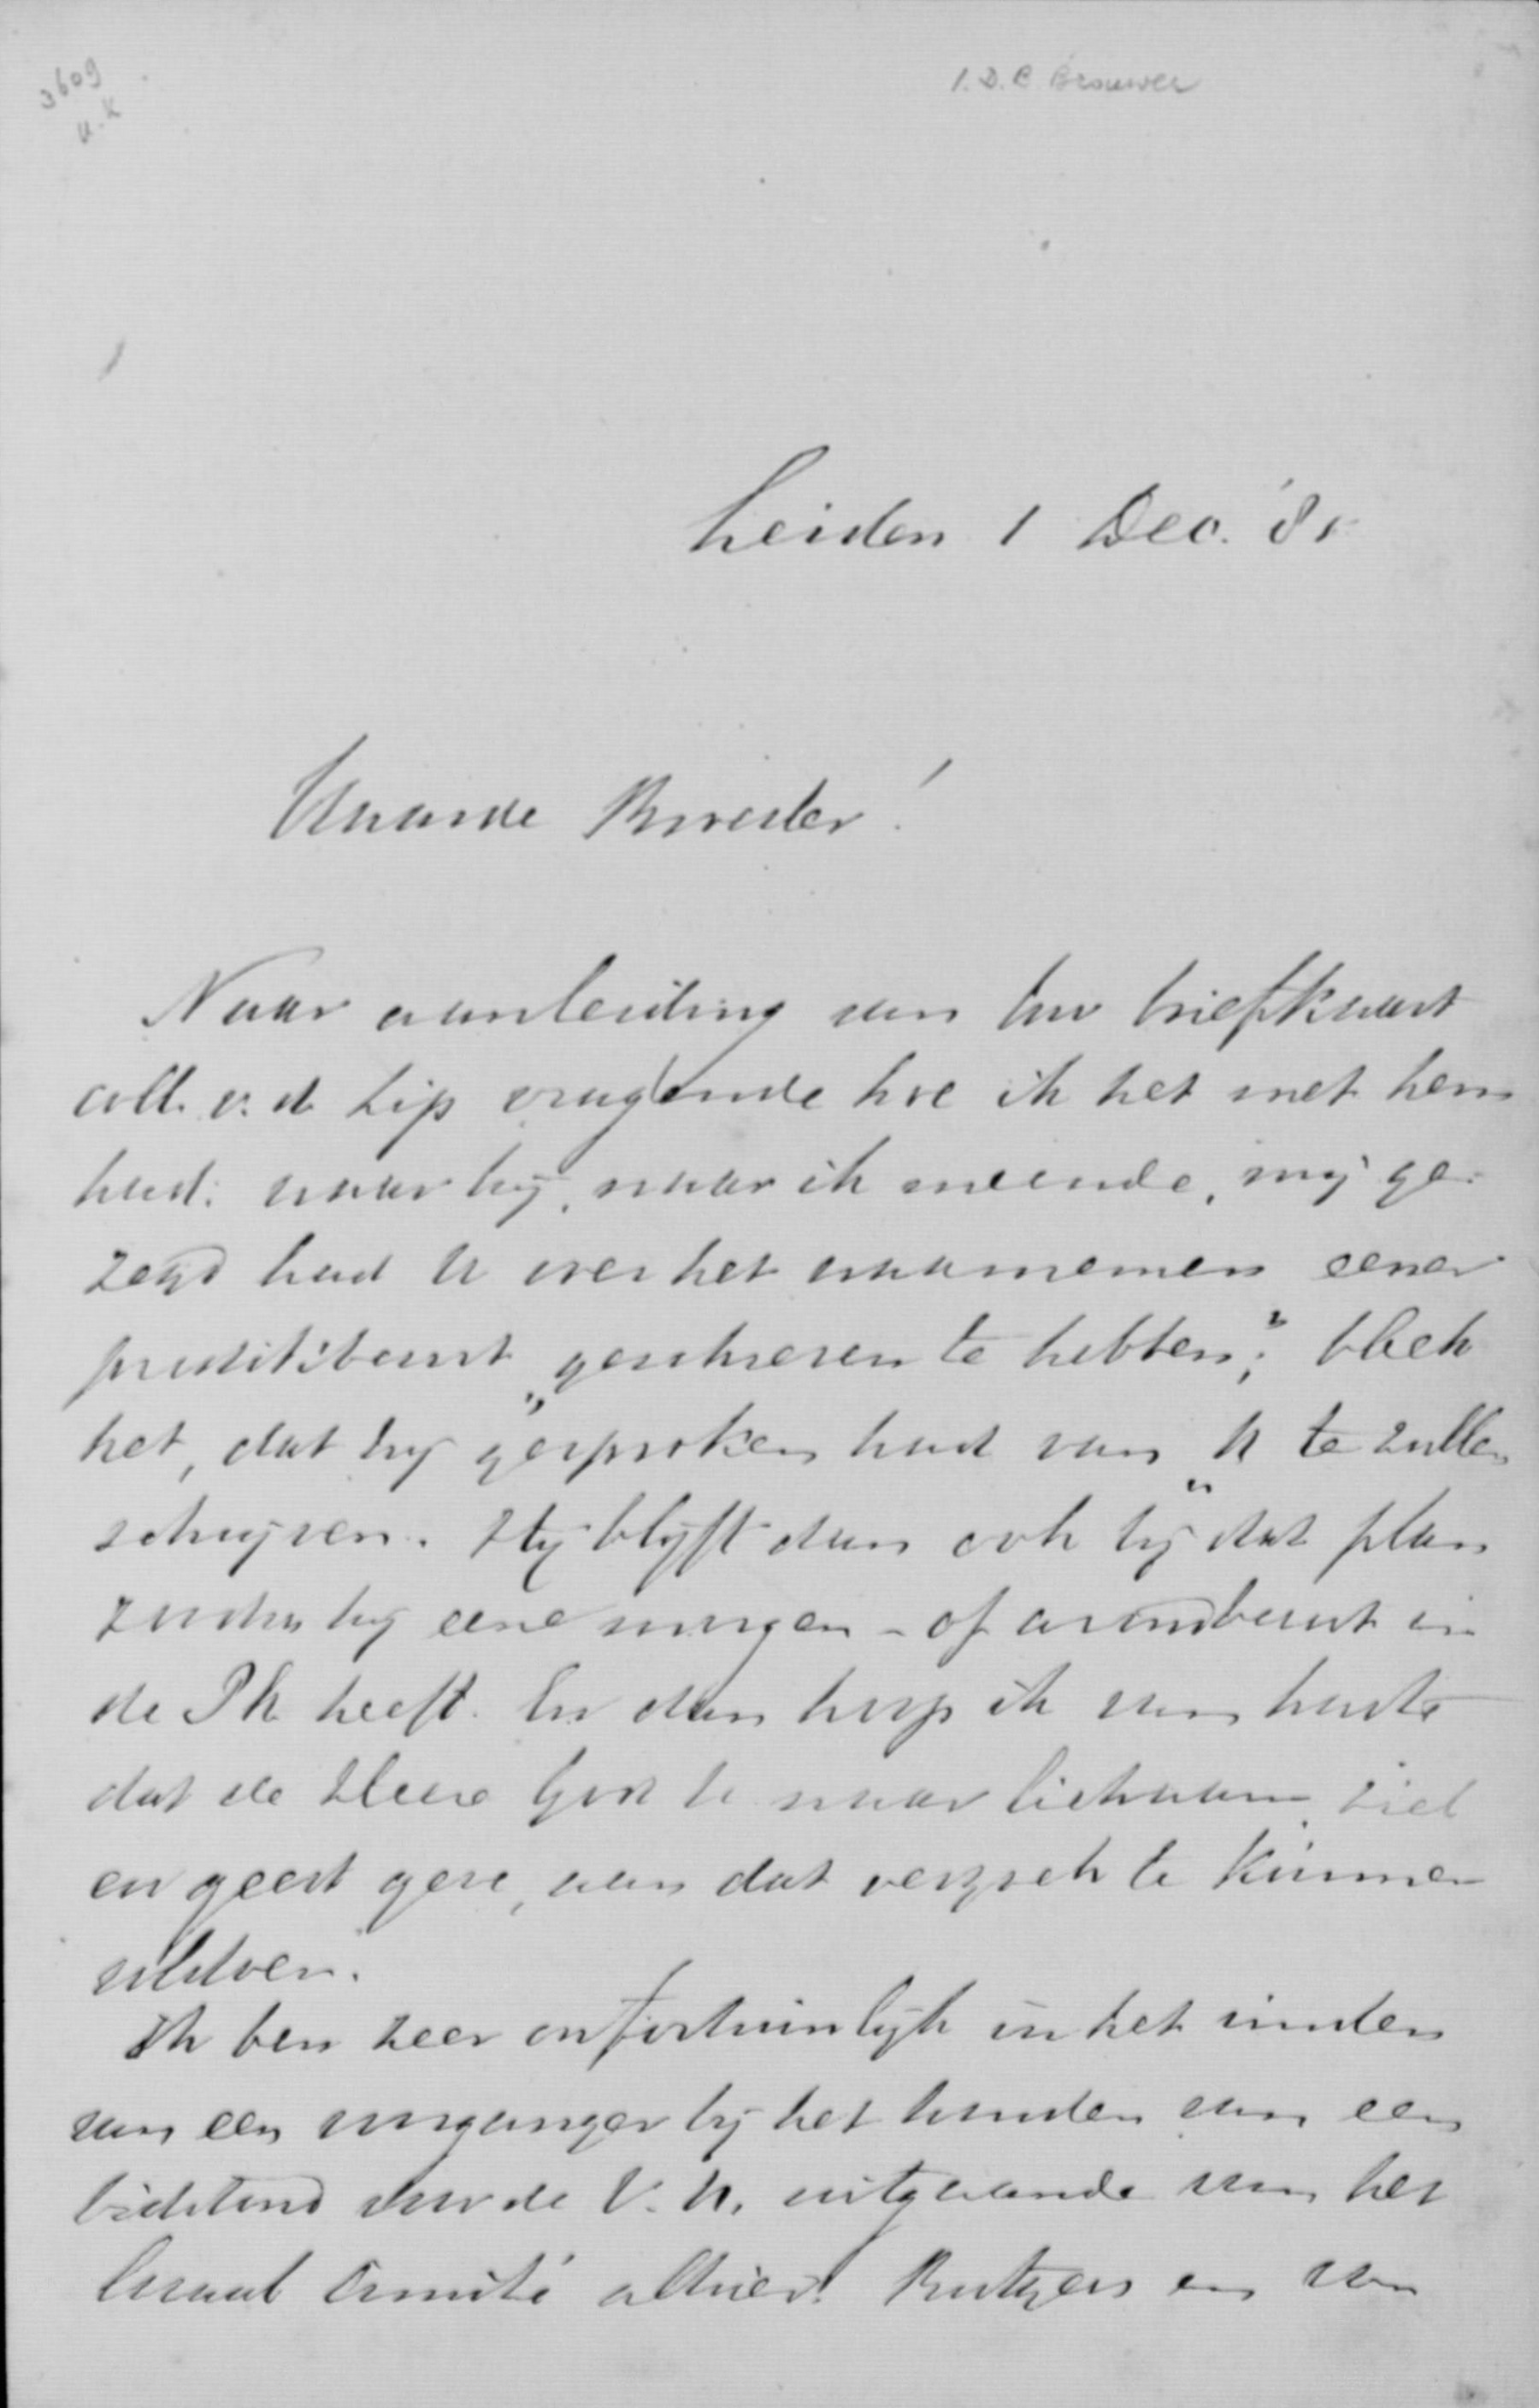 3609
U.K
I. D. C. Brouwer
Leiden 1 Dec. '81
Waarde Broeder!
Naar aanleiding van Uw briefkaart
coll. v. d. Lip vragende hoe ik het met hem
had: waar hij, naar ik meende, mij ge-
zegd had U over het waarnemen eener
predikbeurt „geschreven te hebben"; bleek
het, dat hij gesproken had van „U te zullen
schrijven. Hij blijft dan ook bij dat plan
zoodra hij eene morgen- of avondbeurt in
de Pk heeft. En dan hoop ik van harte
dat de Heere God U naar lichaam, ziel
en geest geve, aan dat verzoek te kunnen
voldoen.
Ik ben zeer onfortuinlijk in het vinden
van een voorganger bij het houden van een
bidstond voor de V. U. uitgaande van het
locaal Comité alhier! Rutgers en van